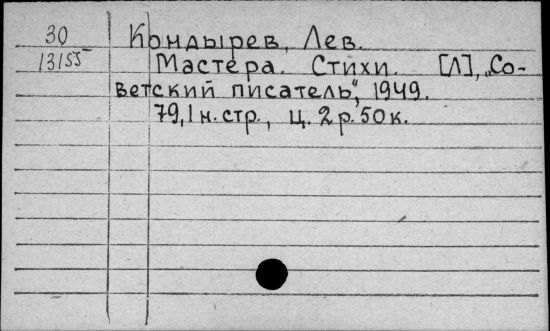 30
13155
Кондырев, Лев.
Мастера. Стихи. [Л], „Со-
ветский писатель", 1949.
79,1 н. стр., ц. 2 р. 50 к.